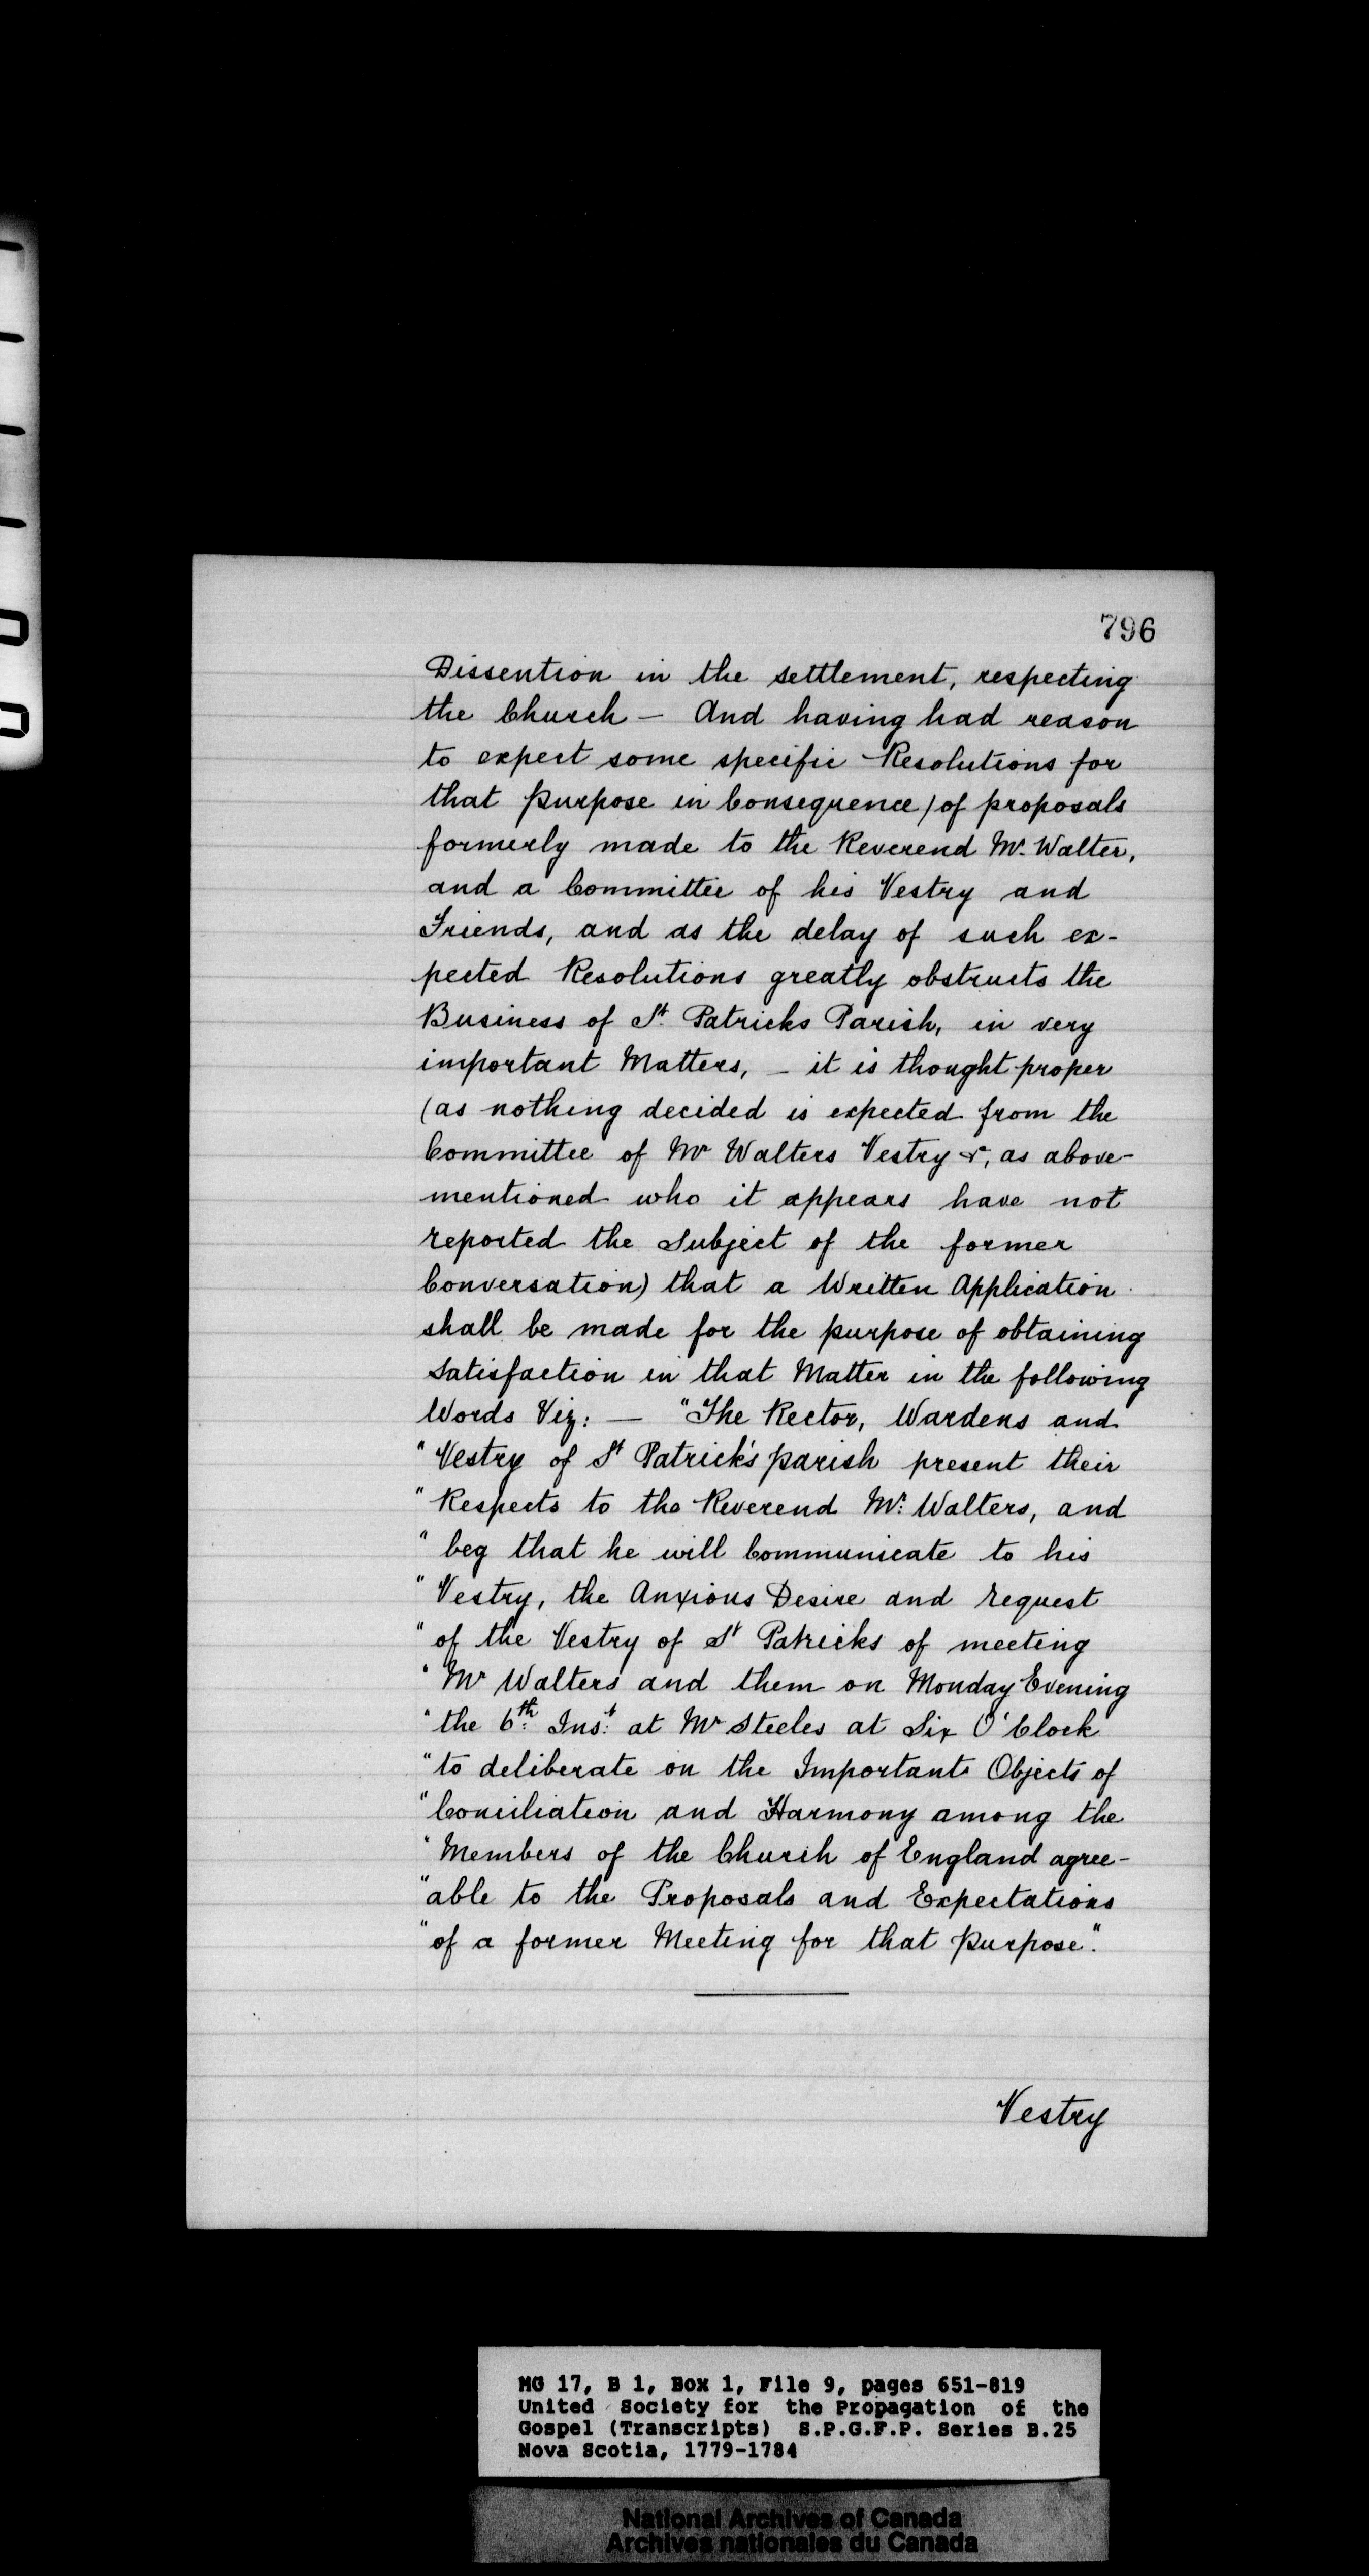 796
Dissention in the settlement, respecting
the Church — And having had reason
to expect some specific Resolutions for
that purpose in Consequence of proposals
formerly made to the Reverend Mr. Walter,
and a Committee of his Vestry and
Friends, and as the delay of such ex-
pected Resolutions greatly obstructs the
Business of St. Patricks Parish, in very
important Matters, — it is thought proper
(as nothing decided is expected from the
Committee of Mr Walters Vestry &c, as above-
mentioned who it appears have not
reported the Subject of the former
Conversation) that a Written Application
shall be made for the purpose of obtaining
Satisfaction in that Matter in the following
Words Viz: — "The Rector, Wardens and
" Vestry of St Patrick's parish present their
" Respects to the Reverend Mr: Walters, and
" beg that he will Communicate to his
" Vestry, the Anxious Desire and request
" of the Vestry of St Patricks of meeting
" Mr Walters and them on Monday Evening
" the 6th: Inst: at Mr Steeles at Six O'Clock
" to deliberate on the Important Objects of
" Conciliation and Harmony among the
" Members of the Church of England agree-
" able to the Proposals and Expectations
" of a former Meeting for that purpose."
Vestry
MG 17, B 1, Box 1, File 9, pages 651-819
United Society for the Propagation of the
Gospel (Transcripts) S.P.G.F.P. Series B.25
Nova Scotia, 1779-1784
National Archives of Canada
Archives nationales du Canada